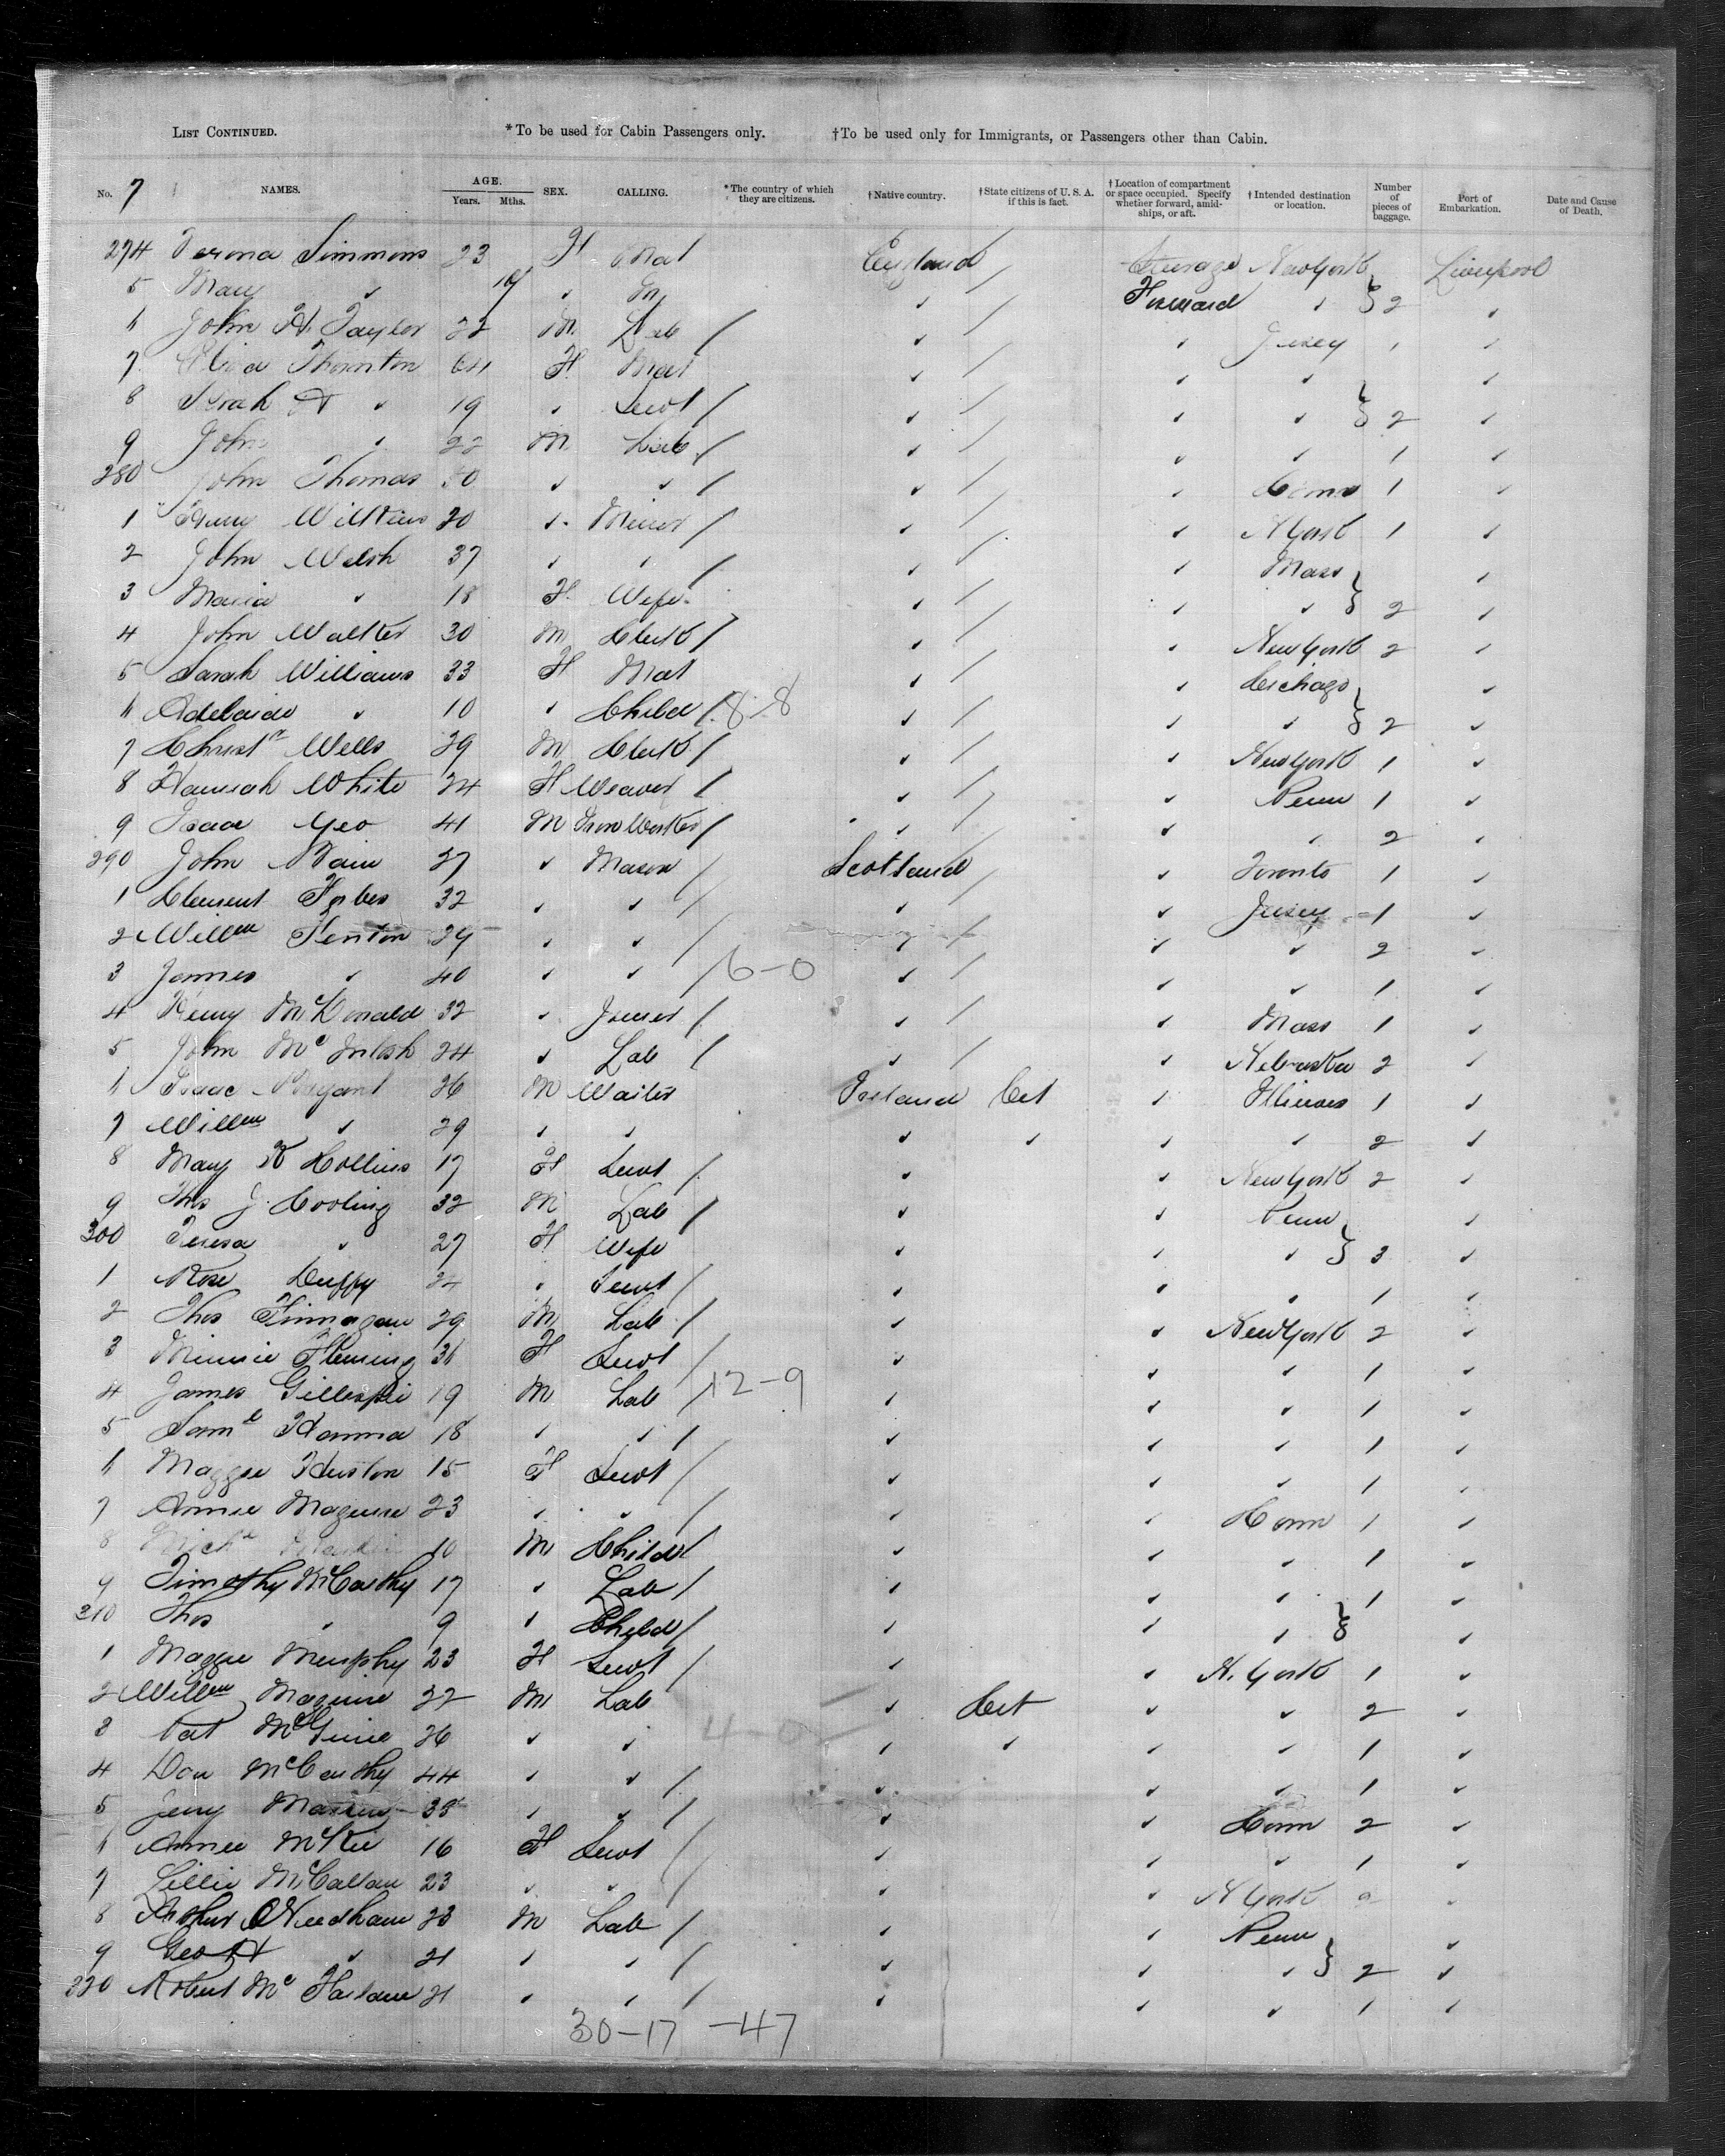 LIST CONTINUED. *To be used for Cabin Passengers only. †To be used only for Immigrants, or Passengers other than Cabin.
No. 7 NAMES. AGE. Years. Mths. SEX. CALLING. *The country of which they are citizens. †Native country. †State citizens of U. S. A. if this is fact. †Location of compartment or space occupied. Specify whether forward, amidships, or aft. †Intended destination or location. Number of pieces of baggage. Port of Embarkation. Date and Cause of Death.
274 Simmons 23 F Mat England / Steerage New York Liverpool
5 Mary " " " / Forward " } 2 "
6 John H. Taylor 22 M Lab / " / " Jersey 1 "
7 Thornton 64 F Mat " / " " "
8 Sarah A " 19 " Servt / " / " " } 2 "
9 John " 22 M Lab / " / " " 1 "
280 John Thomas " " / " / " Conn 1 "
1 Wilkins 20 " Miner / " / " N York 1 "
2 John Walsh 37 " " / " / " Mass "
3 Maria " 18 F Wife " / " " } 2 "
4 John Walker 30 M Clerk / " / " New York 2 "
5 Sarah Williams 33 F Mat " / " Chicago "
6 Adelaide " 10 " Child / 8-8 " / " " } 2 "
7 Christr Wells 29 M Clerk / " / " New York 1 "
8 Hannah White 24 F Weaver / " / " Penn 1 "
9 Isaac Geo 41 M Iron Worker / " / " " 2 "
290 John 27 " Mason / Scotland / " Toronto 1 "
1 Clement Forbes 32 " " / " / " Jersey 1 "
2 Willm Fenton 29 " " / " / " " 2 "
3 James " 40 " " / 6-0 " / " " 1 "
4 Henry McDonald 32 " Joiner / " / " Mass 1 "
5 John McIntosh 24 " Lab / " / " Nebraska 2 "
6 Isaac 26 M Waiter Ireland Cit " Illinois 1 "
7 Willm " 29 " " " " " " 2 "
8 Mary K Collins 17 F Servt / " " New York 2 "
9 Thos J. Cooling 32 M Lab / " " Penn "
300 Teresa " 27 F Wife " " " } 3 "
1 Rose Duffy 24 " Servt / " " " 1 "
2 Thos Finnagan 29 M Lab / " " New York 2 "
3 Minnie Fleming 36 F Servt / " " " 1 "
4 James Gillespie 19 M Lab / 12-9 " " " 1 "
5 Saml Hanna 18 " " / " " " 1 "
6 Maggie Huston 15 F Servt / " " " 1 "
7 Annie Maguire 23 " " / " " Conn 1 "
8 10 M Child / " " " 1 "
9 Timothy McCarthy 17 " Lab / " " " 1 "
310 Thos " 9 " Child / " " " } "
1 Maggie Murphy 23 F Servt / " " N. York 1 "
2 Willm Maguire 22 M Lab " Cit " " 2 "
3 Pat McGuire 26 " " 4-0 " " " " 1 "
4 Dan McCarthy 44 " " / " " " 1 "
5 Jerry " " / " " Conn 2 "
6 Annie McKee 16 F Servt / " " " 1 "
7 Lillie McCallan 23 " " / " " N York "
8 Arthur Needham 23 M Lab / " " Penn "
9 Geo H " 21 " " / " " " } 2 "
320 Robert McFarlane 21 " " / " " " 1 "
30-17-47